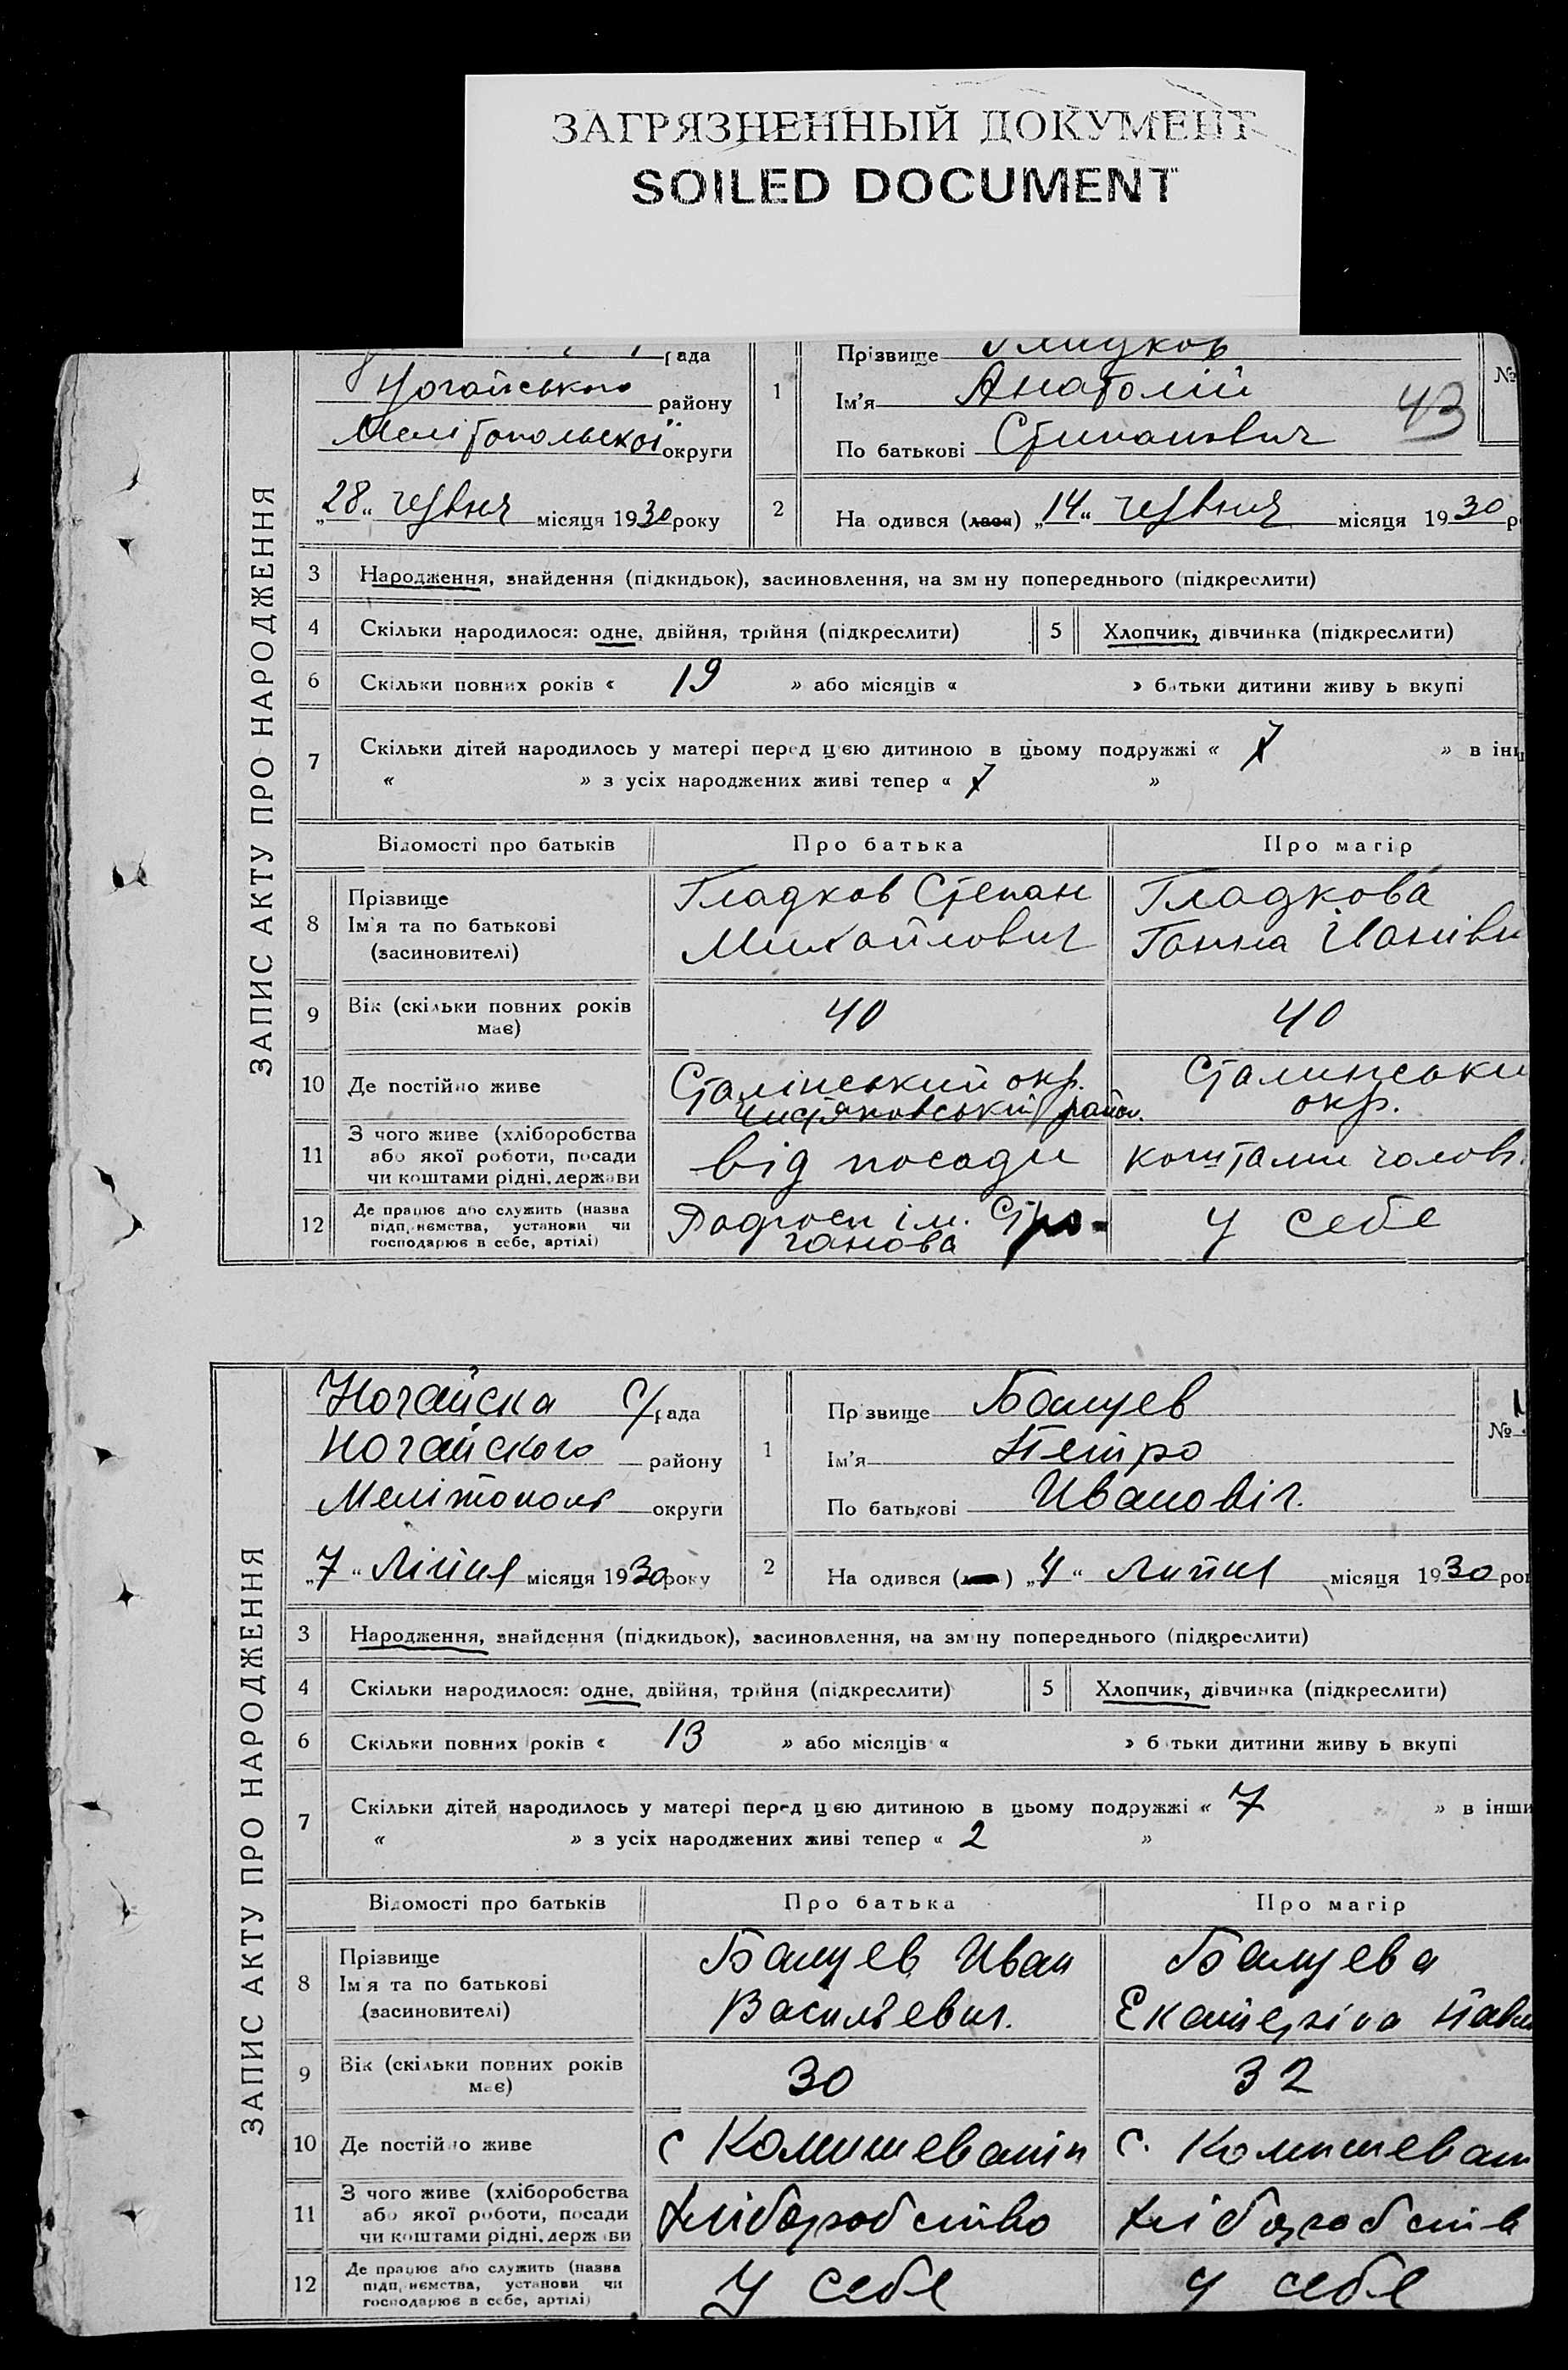 ЗАГРЯЗНЕННЫЙ ДОКУМЕНТ
SOILED DOCUMENT
ЗАПИС АКТУ ПРО НАРОДЖЕННЯ
рада
Ногайського району
Мелітопольскої округи
„28“ червня місяця 1930 року
1
Прізвище Гладков
Ім'я Анатолій
По батькові Степанович
43
№
2
На одився (лася) „14“ червня місяця 1930 р
3 Народження, знайдення (підкидьок), засиновлення, на зм ну попереднього (підкреслити)
4 Скільки народилося: одне, двійня, трійня (підкреслити) 5 Хлопчик, дівчинка (підкреслити)
6 Скільки повних років « 19 » або місяців « » батьки дитини живу ь вкупі
7 Скільки дітей народилось у матері перед цією дитиною в цьому подружжі « 7 » в інш
« » з усіх народжених живі тепер « 7 »
Відомості про батьків Про батька Про матір
8 Прізвище
Ім'я та по батькові
(засиновителі)
Гладков Степан
Михайлович
Гладкова
Ганна Іванівн
9 Вік (скільки повних років
має)
40 40
10 Де постійно живе
Сталінський окр.
Чистяковський район.
Сталинськи
окр.
11 З чого живе (хліборобства
або якої роботи, посади
чи коштами рідні, держави
від посади коштами чолов.
12 Де працює або служить (назва
підп, нємства, установи чи
господарює в себе, артілі)
ім. Стро-
ганова
у себе
ЗАПИС АКТУ ПРО НАРОДЖЕННЯ
Ногайска С/рада
Ногайского району
Мелітополь округи
„7“ Ліпня місяця 1930 року
1
Пр звище Балуев
Ім'я Петро
По батькові Ивановіч.
№
2
На одився ( ) „4“ Липня місяця 1930 рок
3 Народження, знайдення (підкидьок), засиновлення, на зм ну попереднього (підкреслити)
4 Скільки народилося: одне, двійня, трійня (підкреслити) 5 Хлопчик, дівчинка (підкреслити)
6 Скільки повних років « 13 » або місяців « » б тьки дитини живу ь вкупі
7 Скільки дітей народилось у матері перед цією дитиною в цьому подружжі « 7 » в інши
« » з усіх народжених живі тепер « 2 »
Відомості про батьків Про батька Про матір
8 Прізвище
Ім'я та по батькові
(засиновителі)
Балуев Иван
Васильевич.
Балуева
Екатерхіна Павл
9 Вік (скільки повних років
має)
30 32
10 Де постійно живе
с Комишеватін с. Комишеват
11 З чого живе (хліборобства
або якої роботи, посади
чи коштами рідні, держ ви
хліборобство хліборобств
12 Де працює або служить (назва
підп, нємства, установи чи
господарює в себе, артілі)
у себе у себе